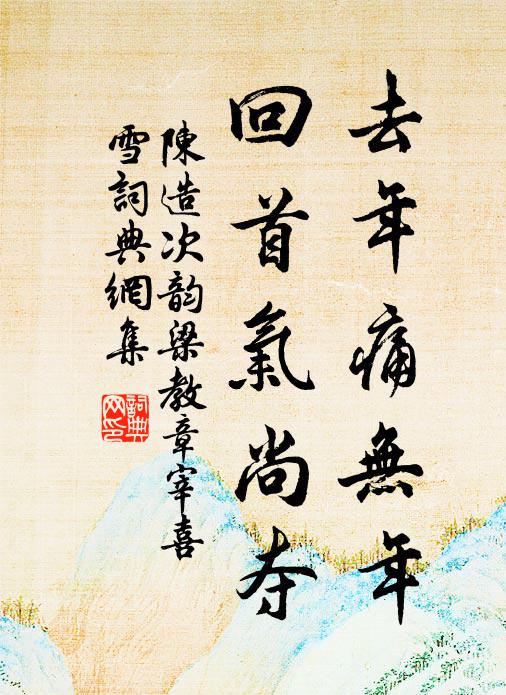 去年痛無年
回首氣尚夺
陳造次韵梁教章宰喜
雪詞典網集
詞典
网印